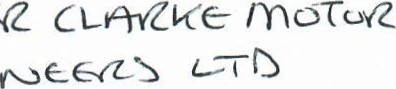 R CLARKE MOTOR
NEERS LTD